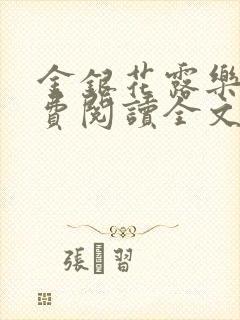 金銀花露樂
費閱讀全文
張 習